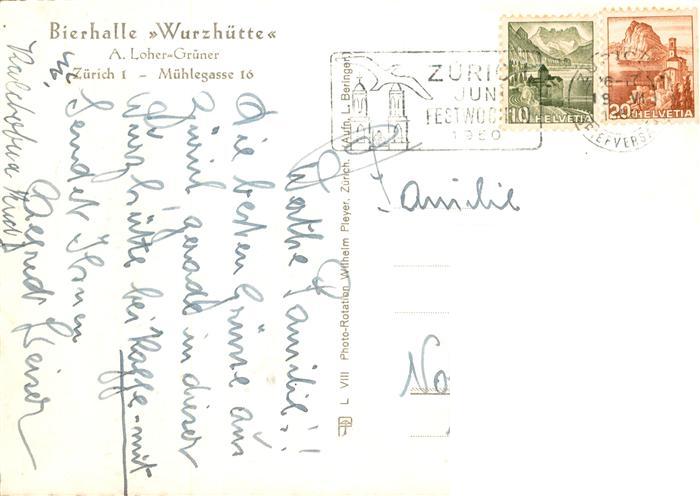 Bierhalle »Wurzhütte«
A. Loher-Grüner
Zürich 1 – Mühlegasse 16
ZÜRICH
JUNI
FESTWOCHEN
1950
10 HELVETIA
20 HELVETIA
BRIEFVERSAND
Familie
No
L VIII Photo-Rotation Wilhelm Pleyer, Zürich. (Aufn. L. Beringer)
Werthe Familie!!
Die besten Grüsse aus
Zürich gerade in dieser
Wurzhütte bei Kaffe-mit
sendet Ihnen